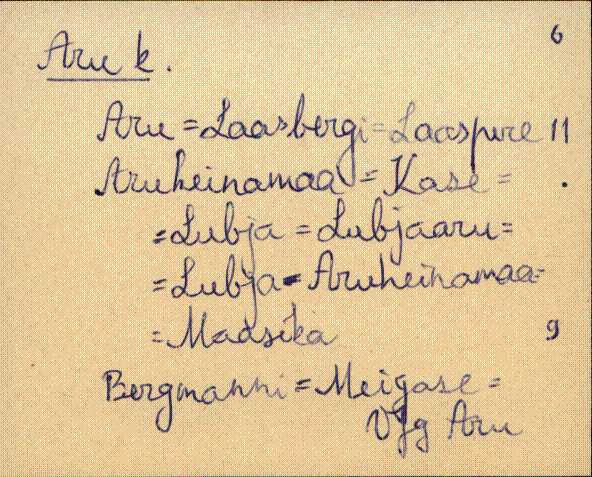 6
Aru k.
Aru = Laasbergi = Laaspere 11
Aruheinamaa = Kase = .
= Lubja = Lubjaaru =
= Lubja - Aruheinamaa =
= Maasika 9
Bergmanni = Meigase =
Aru